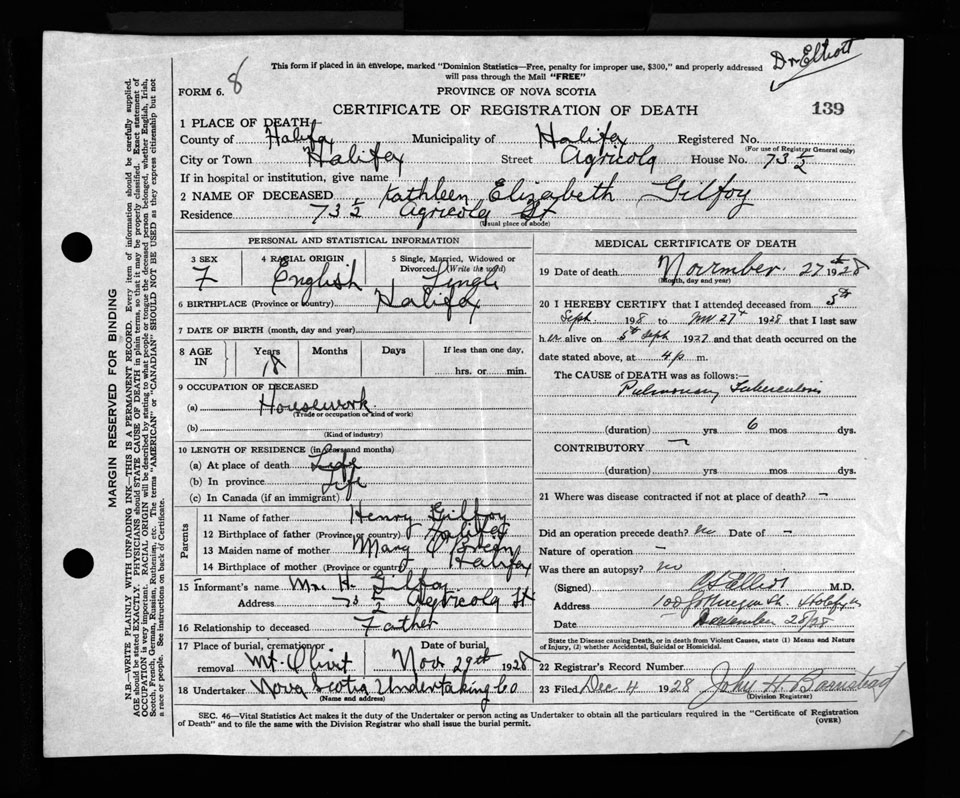 Dr Elliott
8
This form if placed in an envelope, marked "Dominion Statistics—Free, penalty for improper use, $300," and properly addressed
will pass through the Mail "FREE"
FORM 6.
PROVINCE OF NOVA SCOTIA
CERTIFICATE OF REGISTRATION OF DEATH
139
1 PLACE OF DEATH
County of Halifax Municipality of Halifax Registered No.
(For use of Registrar General only)
City or Town Halifax Street Agricola House No. 73 1/2
If in hospital or institution, give name
2 NAME OF DECEASED Kathleen Elizabeth Gilfoy
Residence 73 1/2 Agricola St
(Usual place of abode)
PERSONAL AND STATISTICAL INFORMATION
3 SEX F
4 RACIAL ORIGIN English
5 Single, Married, Widowed or Divorced. (Write the word) Single
6 BIRTHPLACE (Province or country) Halifax
7 DATE OF BIRTH (month, day and year)
8 AGE IN Years 18 Months Days If less than one day, hrs. or min.
9 OCCUPATION OF DECEASED
(a) Housework
(Trade or occupation or kind of work)
(b)
(Kind of industry)
10 LENGTH OF RESIDENCE (in years and months)
(a) At place of death Life
(b) In province Life
(c) In Canada (if an immigrant)
Parents
11 Name of father Henry Gilfoy
12 Birthplace of father (Province or country) Halifax
13 Maiden name of mother Mary O'Brean
14 Birthplace of mother (Province or country) Halifax
15 Informant's name Mr. H. Gilfoy
Address 73 1/2 Agricola St
16 Relationship to deceased Father
17 Place of burial, cremation or removal Mt. Olivet
Date of burial Nov 29th 1928
18 Undertaker Nova Scotia Undertaking Co
(Name and address)
MEDICAL CERTIFICATE OF DEATH
19 Date of death November 27th 1928
(Month, day and year)
20 I HEREBY CERTIFY that I attended deceased from 5th
Sept. 1928 to Nov 27th 1928 that I last saw
her alive on 5th Sept 1927 and that death occurred on the
date stated above, at 4 p m.
The CAUSE of DEATH was as follows:—
Pulmonary Tuberculosis
(duration) yrs 6 mos dys.
CONTRIBUTORY —
(duration) yrs mos dys.
21 Where was disease contracted if not at place of death? —
Did an operation precede death? no Date of —
Nature of operation —
Was there an autopsy? no
(Signed) Elliott M.D.
Address 100 Halifax
Date November 28/28
State the Disease causing Death, or in death from Violent Causes, state (1) Means and Nature
of Injury, (2) whether Accidental, Suicidal or Homicidal.
22 Registrar's Record Number
23 Filed Dec 4 1928 John H. Barnstead
(Division Registrar)
SEC. 46—Vital Statistics Act makes it the duty of the Undertaker or person acting as Undertaker to obtain all the particulars required in the "Certificate of Registration
of Death" and to file the same with the Division Registrar who shall issue the burial permit.
(OVER)
MARGIN RESERVED FOR BINDING
N.B.—WRITE PLAINLY WITH UNFADING INK—THIS IS A PERMANENT RECORD. Every item of information should be carefully supplied.
AGE should be stated EXACTLY. PHYSICIANS should STATE CAUSE OF DEATH in plain terms, so that it may be properly classified. Exact statement of
OCCUPATION is very important. RACIAL ORIGIN will be described by stating to what people or tongue the deceased person belonged, whether English, Irish,
Scotch, French, German, Russian, Ruthenian, etc. The terms "AMERICAN" or "CANADIAN" SHOULD NOT BE USED as they express citizenship but not
a race or people. See instructions on back of Certificate.